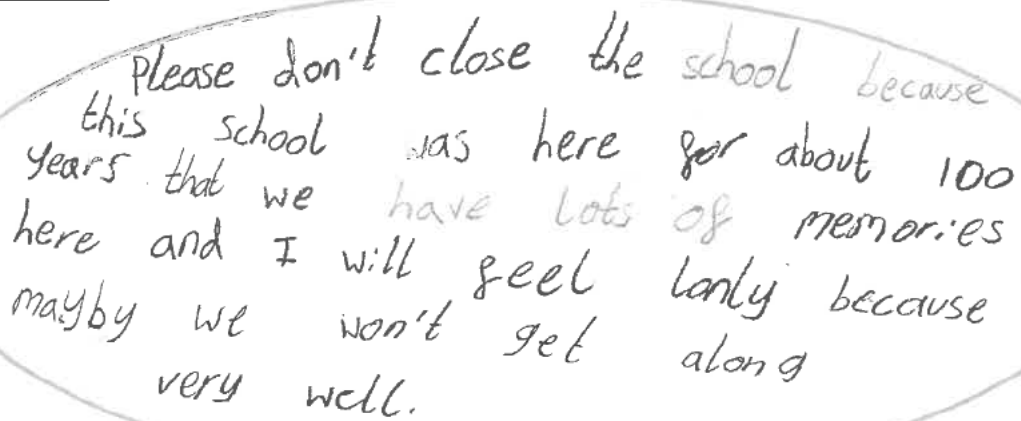 Please don't close the school because
this school was here for about 100
years that we have lots of memories
here and I will feel lonly because
mayby we won't get along
very well.